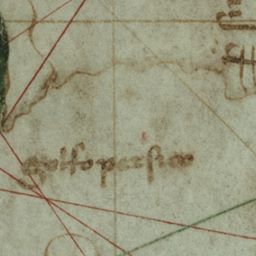 golfo persico